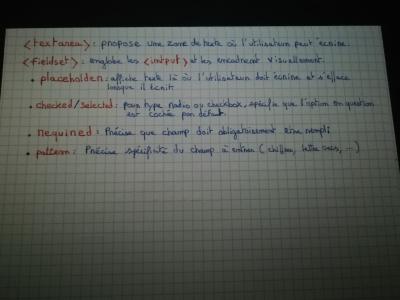 <textarea> : propose une zone de texte où l'utilisateur peut écrire.
<fieldset> : englobe les <input> et les encadrent visuellement.
• placeholder : affiche texte là où l'utilisateur doit écrire et s'efface
lorsque il écrit
• checked/selected : pour type radio ou checkbox, spécifie que l'option en question
est cochée par défaut.
• required : Précise que champ doit obligatoirement être rempli
• pattern : Précise spécificité du champ à entrer (chiffres, lettre, ...)